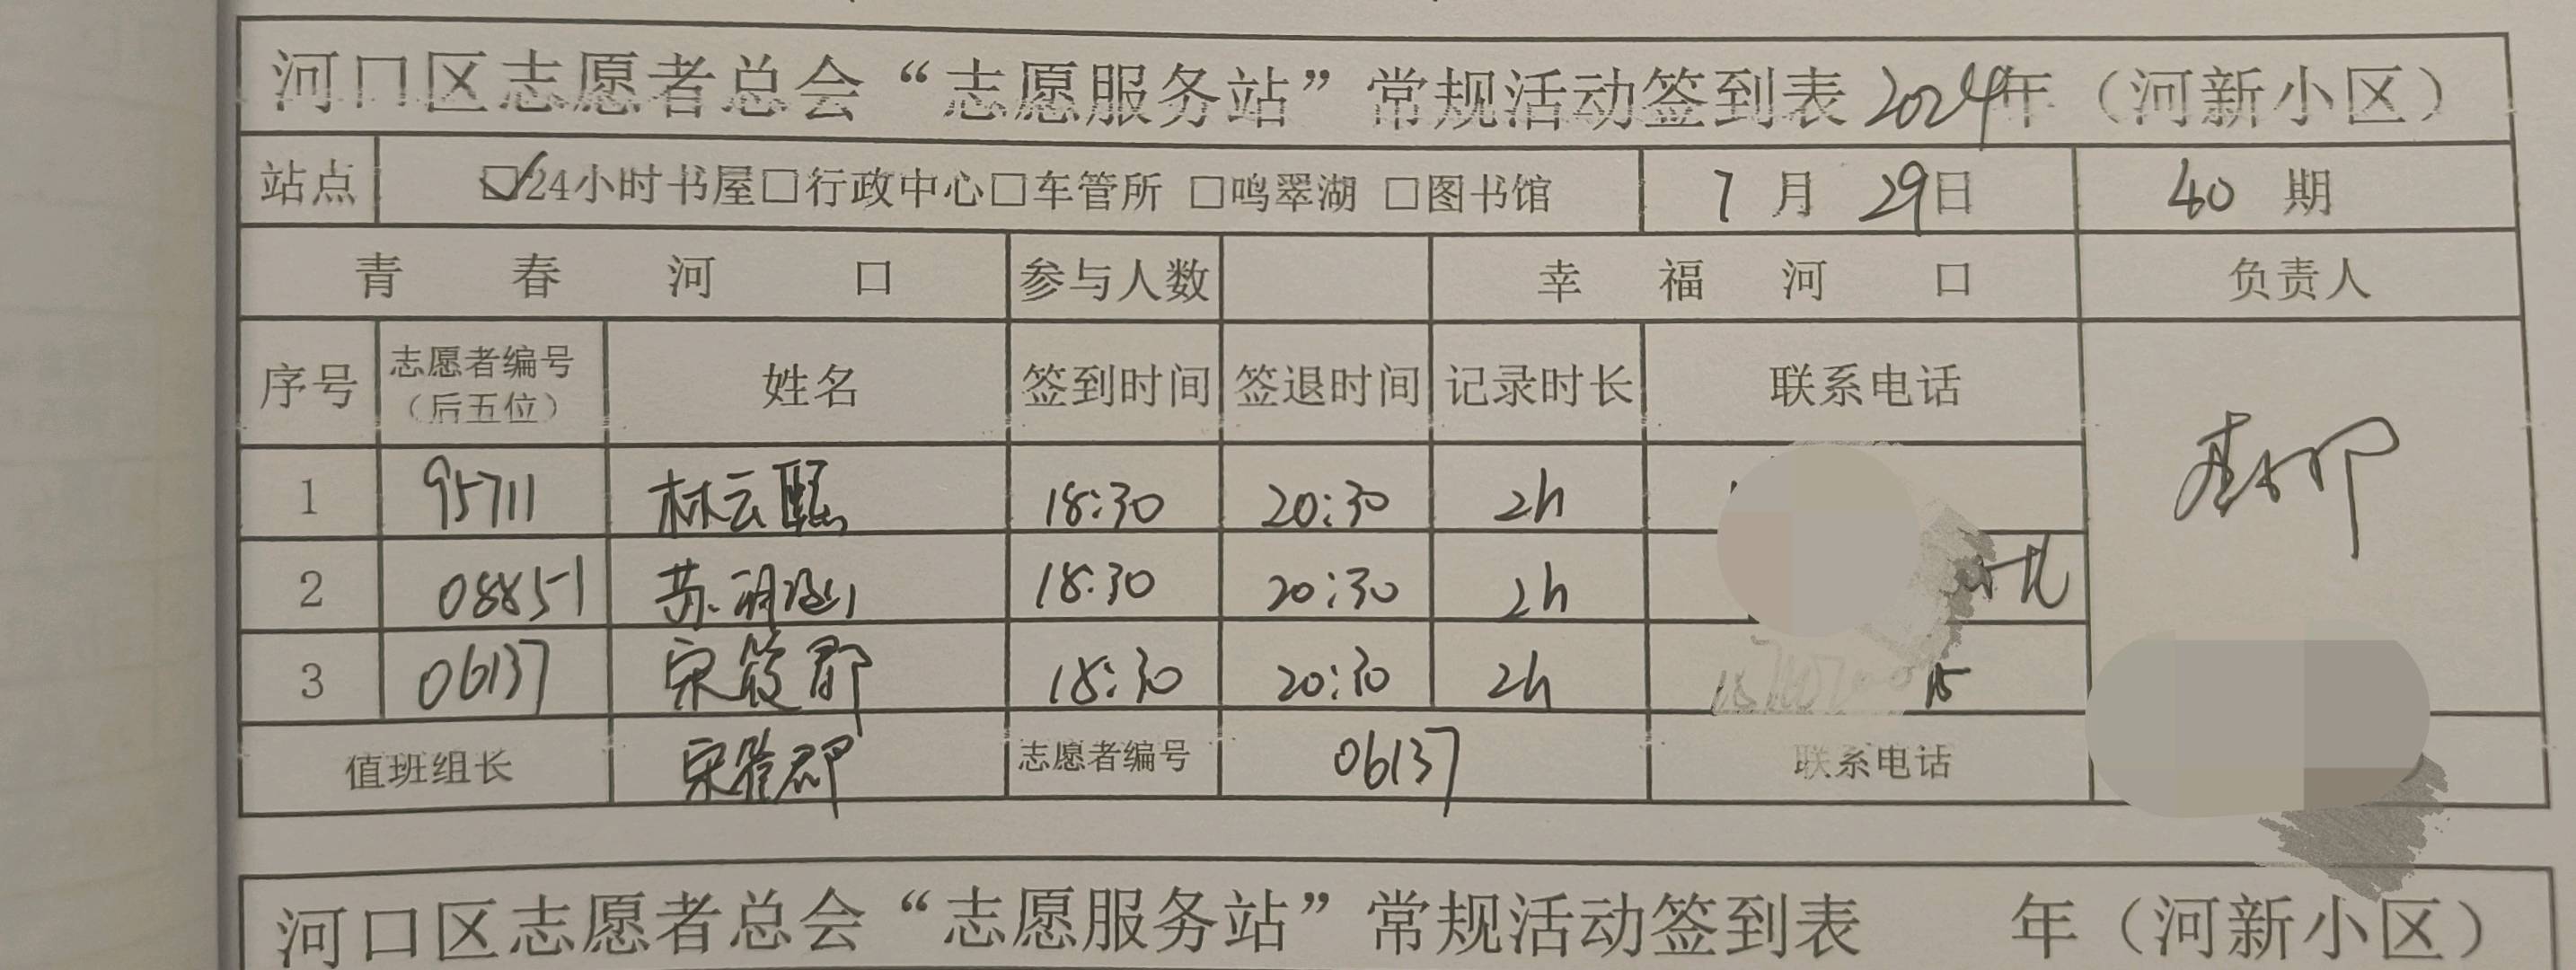 河口区志愿者总会“志愿服务站”常规活动签到表2024年（河新小区）
站点 ☑24小时书屋□行政中心□车管所 □鸣翠湖 □图书馆 7月29日 40期
青春河口 参与人数 幸福河口 负责人
序号 志愿者编号（后五位） 姓名 签到时间 签退时间 记录时长 联系电话
1 95711 林云 18:30 20:30 2h
2 08851 苏 18:30 20:30 2h
3 06137 宋筱郡 18:30 20:30 2h 15
值班组长 宋筱郡 志愿者编号 06137 联系电话
河口区志愿者总会“志愿服务站”常规活动签到表 年（河新小区）